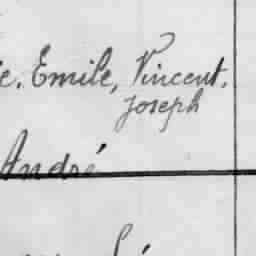 Emile, Vincent,
Joseph
André